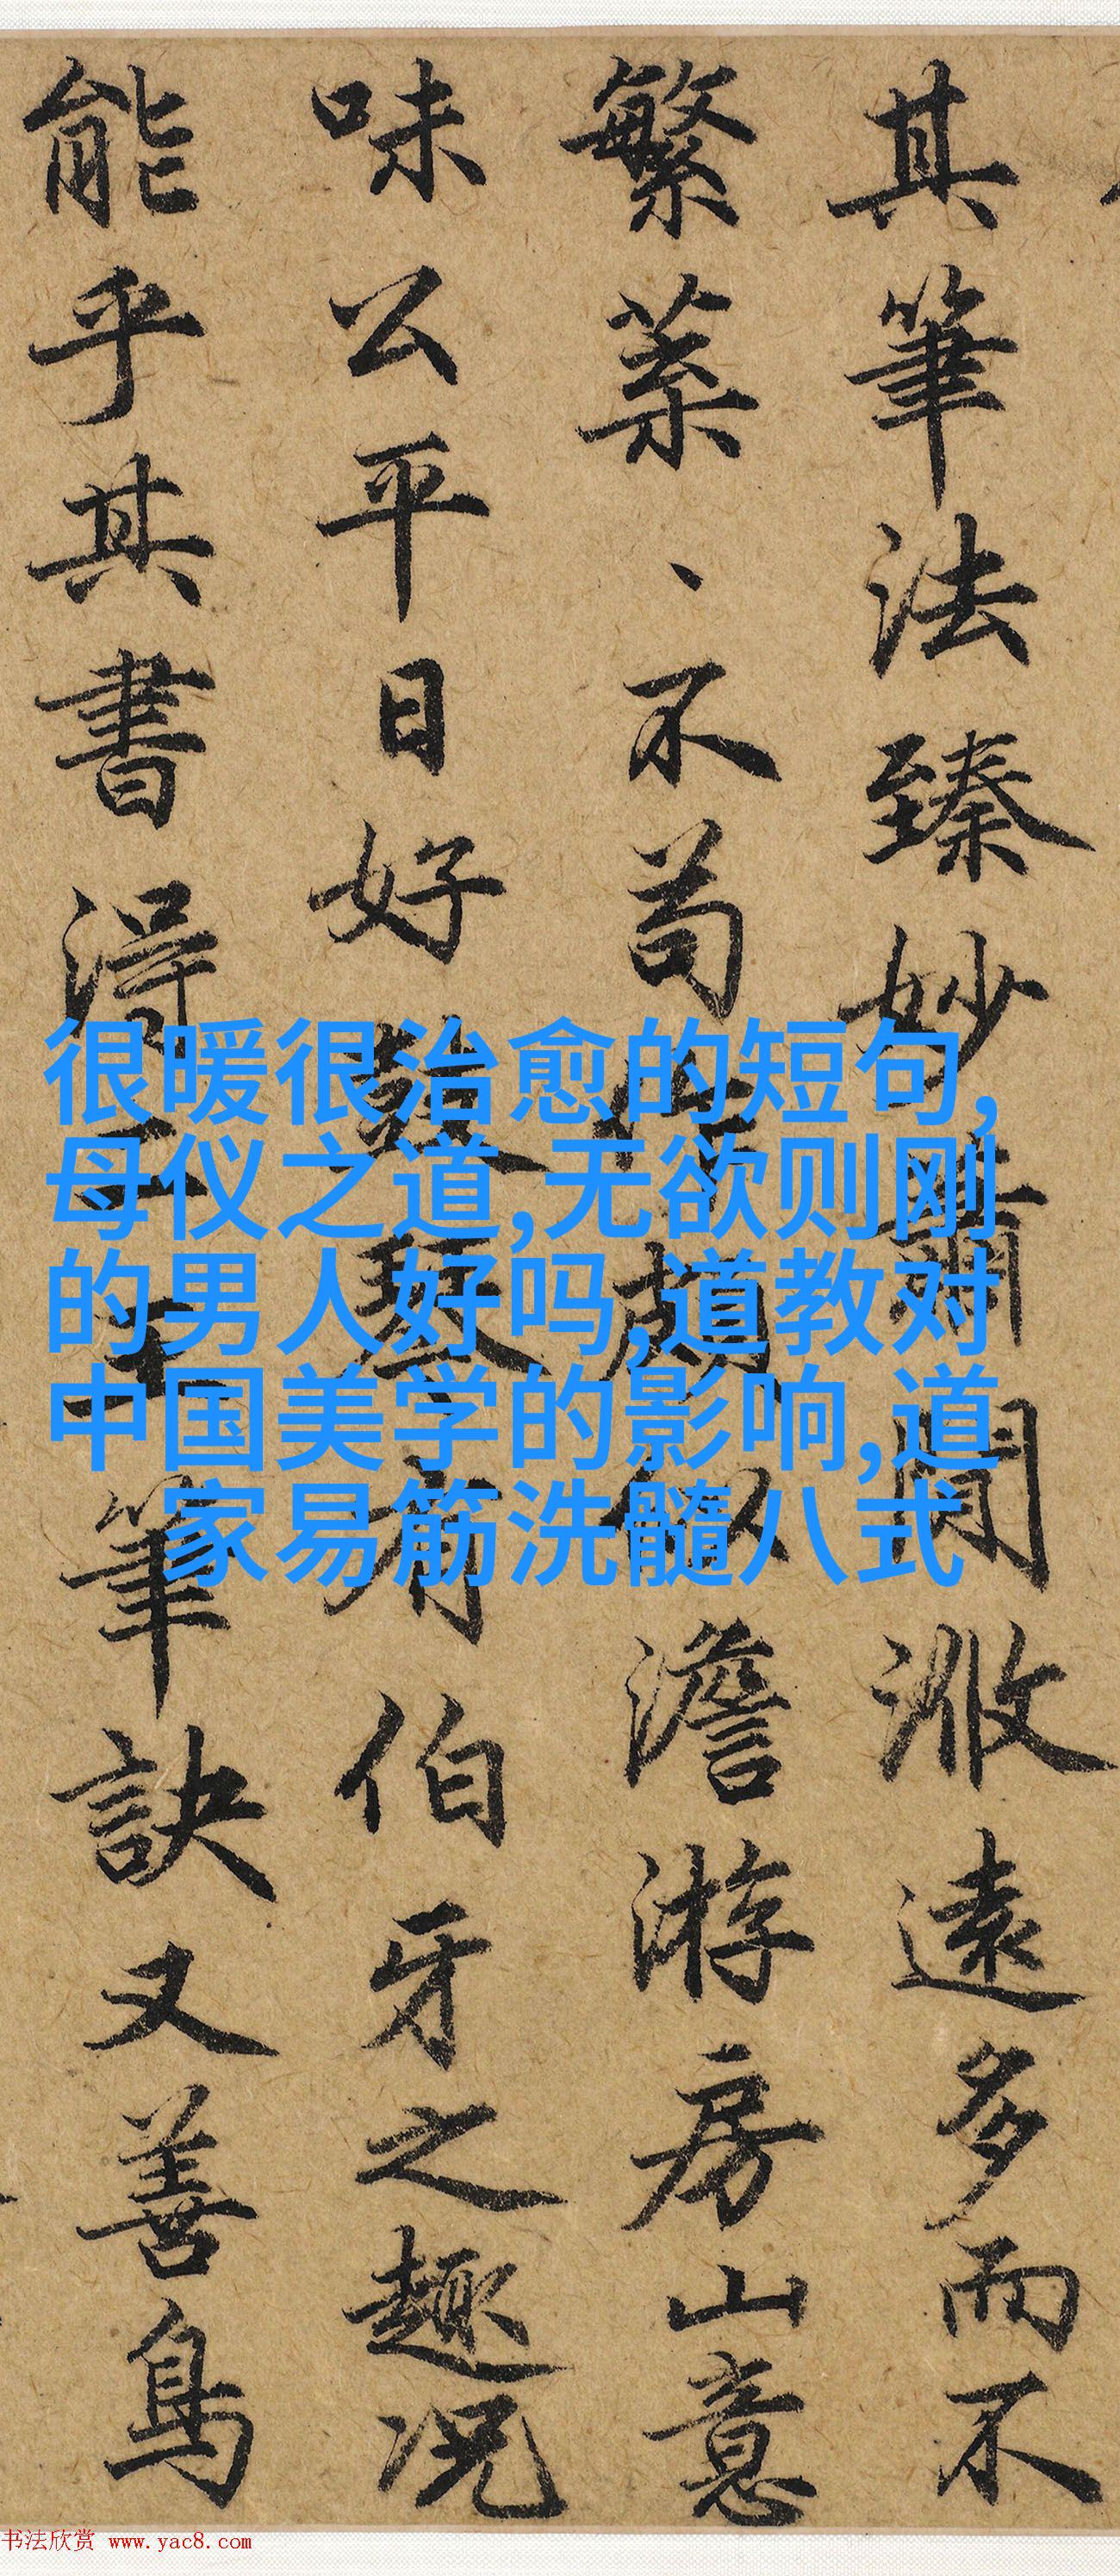 其筆法臻妙蕭閒澹遠多而不
繁菜、不苟
澹游房山意
味公平日好鼓琴有伯牙之趣况
能乎其書得二王筆訣又善鳥
很暖很治愈的短句,
母仪之道,无欲则刚
的男人好吗,道教对
中国美学的影响,道
家易筋洗髓八式
书法欣赏 www.yac8.com